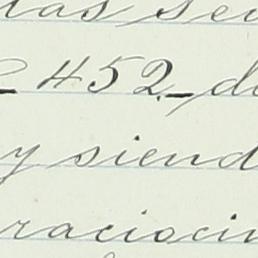 las se
452 d
y siend
raciocin